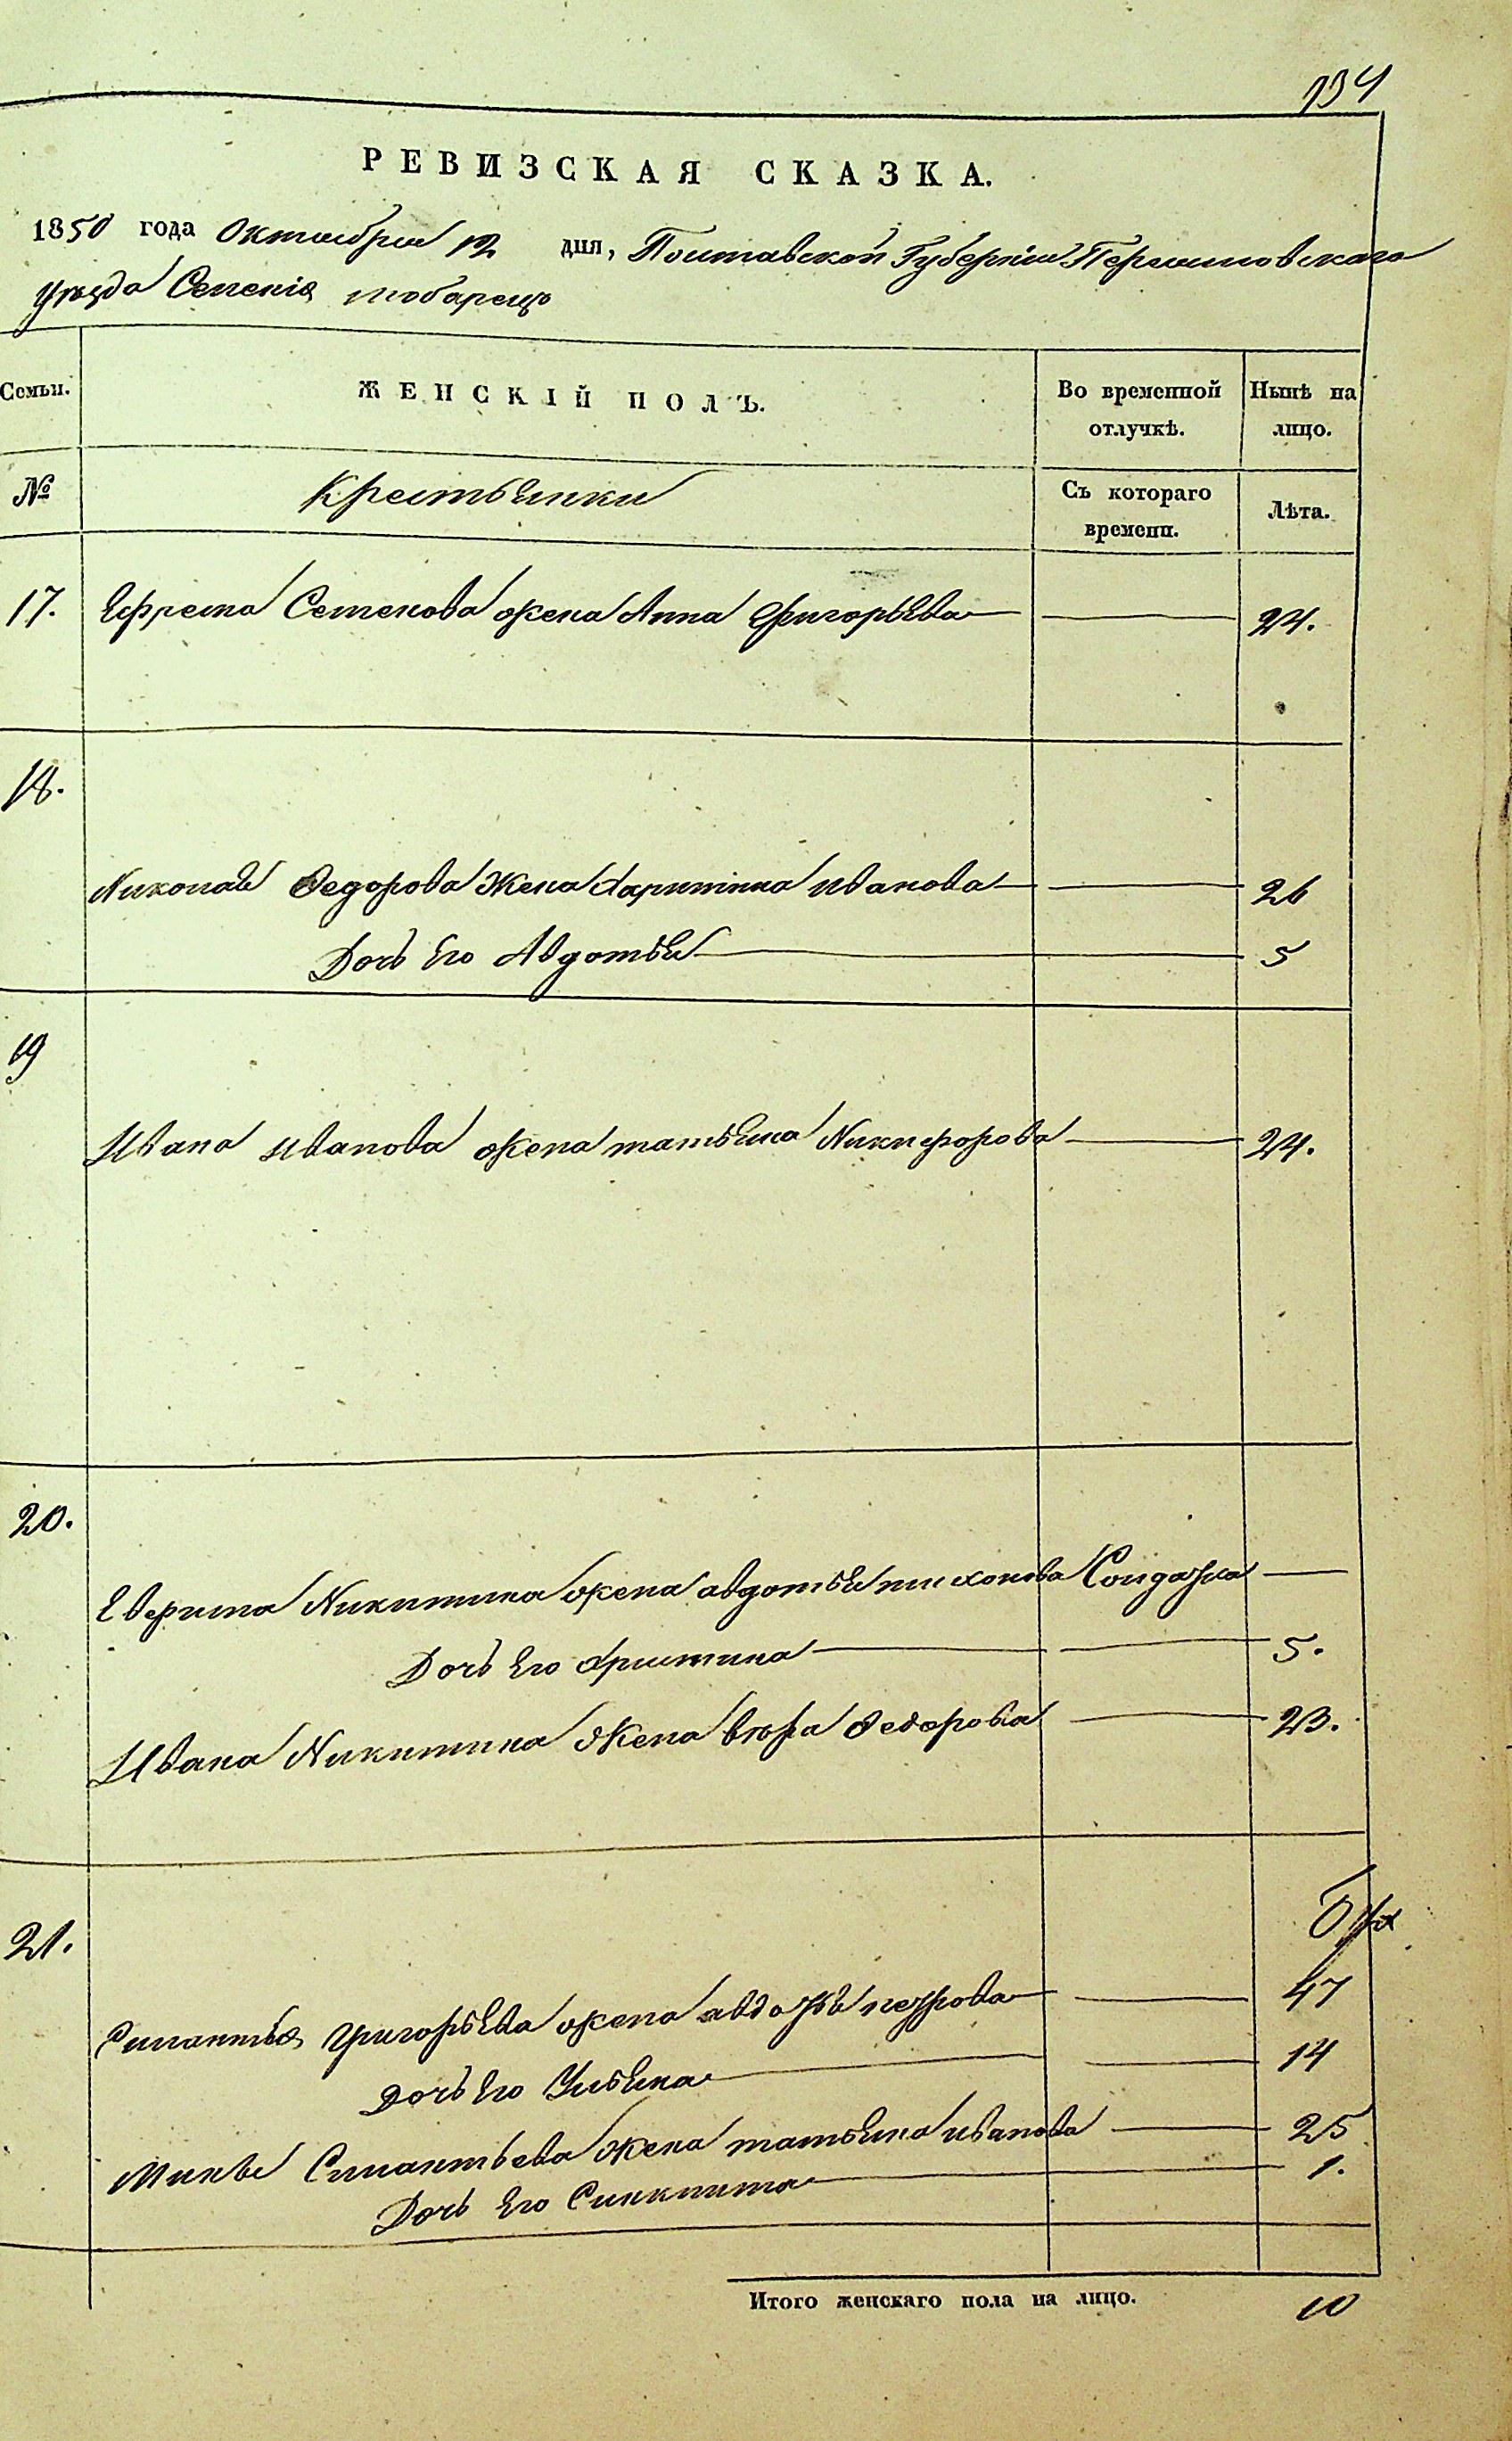 134
РЕВИЗСКАЯ СКАЗКА.
1850 года Октября 12 дня, Полтавской Губерніи Переяславскаго
уезда Селенія
Семьи. ЖЕНСКІЙ ПОЛЪ. Во временной отлучкѣ. Нынѣ на лицо.
№ Крестьянки Съ котораго времени. Лѣта.
17. Ефрема Семенова жена Анна Григорьева 24.
18.
Николая Федорова Жена Харитина иванова 26
Дочь Его Авдотья 5
19
Ивана иванова жена татьяна Никифорова 24.
20.
Никитина жена авдотья тихонова Солдатка
Дочь Его Христина 5.
Ивана Никитина Жена вѣра Федорова 23.
21.
Силантья григорьева жена авдотья петрова 47
дочь Его Ульяна 14
Силантьева жена татьяна иванова 25
Дочь Его 1.
Итого женскаго пола на лицо. 10